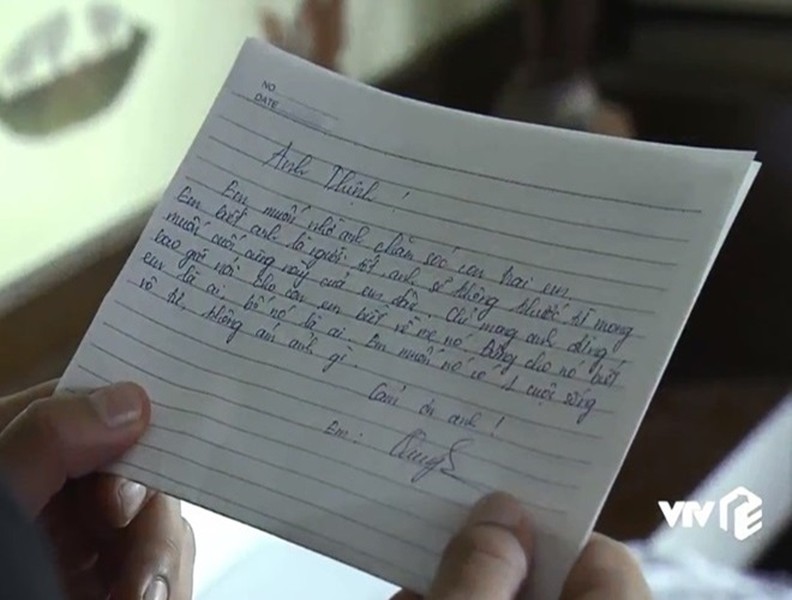 NO.
DATE
Anh Thịnh!
Em muốn nhờ anh chăm sóc con trai em.
Em biết anh là người tốt, anh sẽ không khước từ mong
muốn cuối cùng này của em đâu. Chỉ mong anh đừng
bao giờ nói cho con em biết về mẹ nó. Đừng cho nó biết
em là ai, bố nó là ai. Em muốn nó có 1 cuộc sống
vô tư, không ám ảnh gì.
Cảm ơn anh!
Em:
VTV